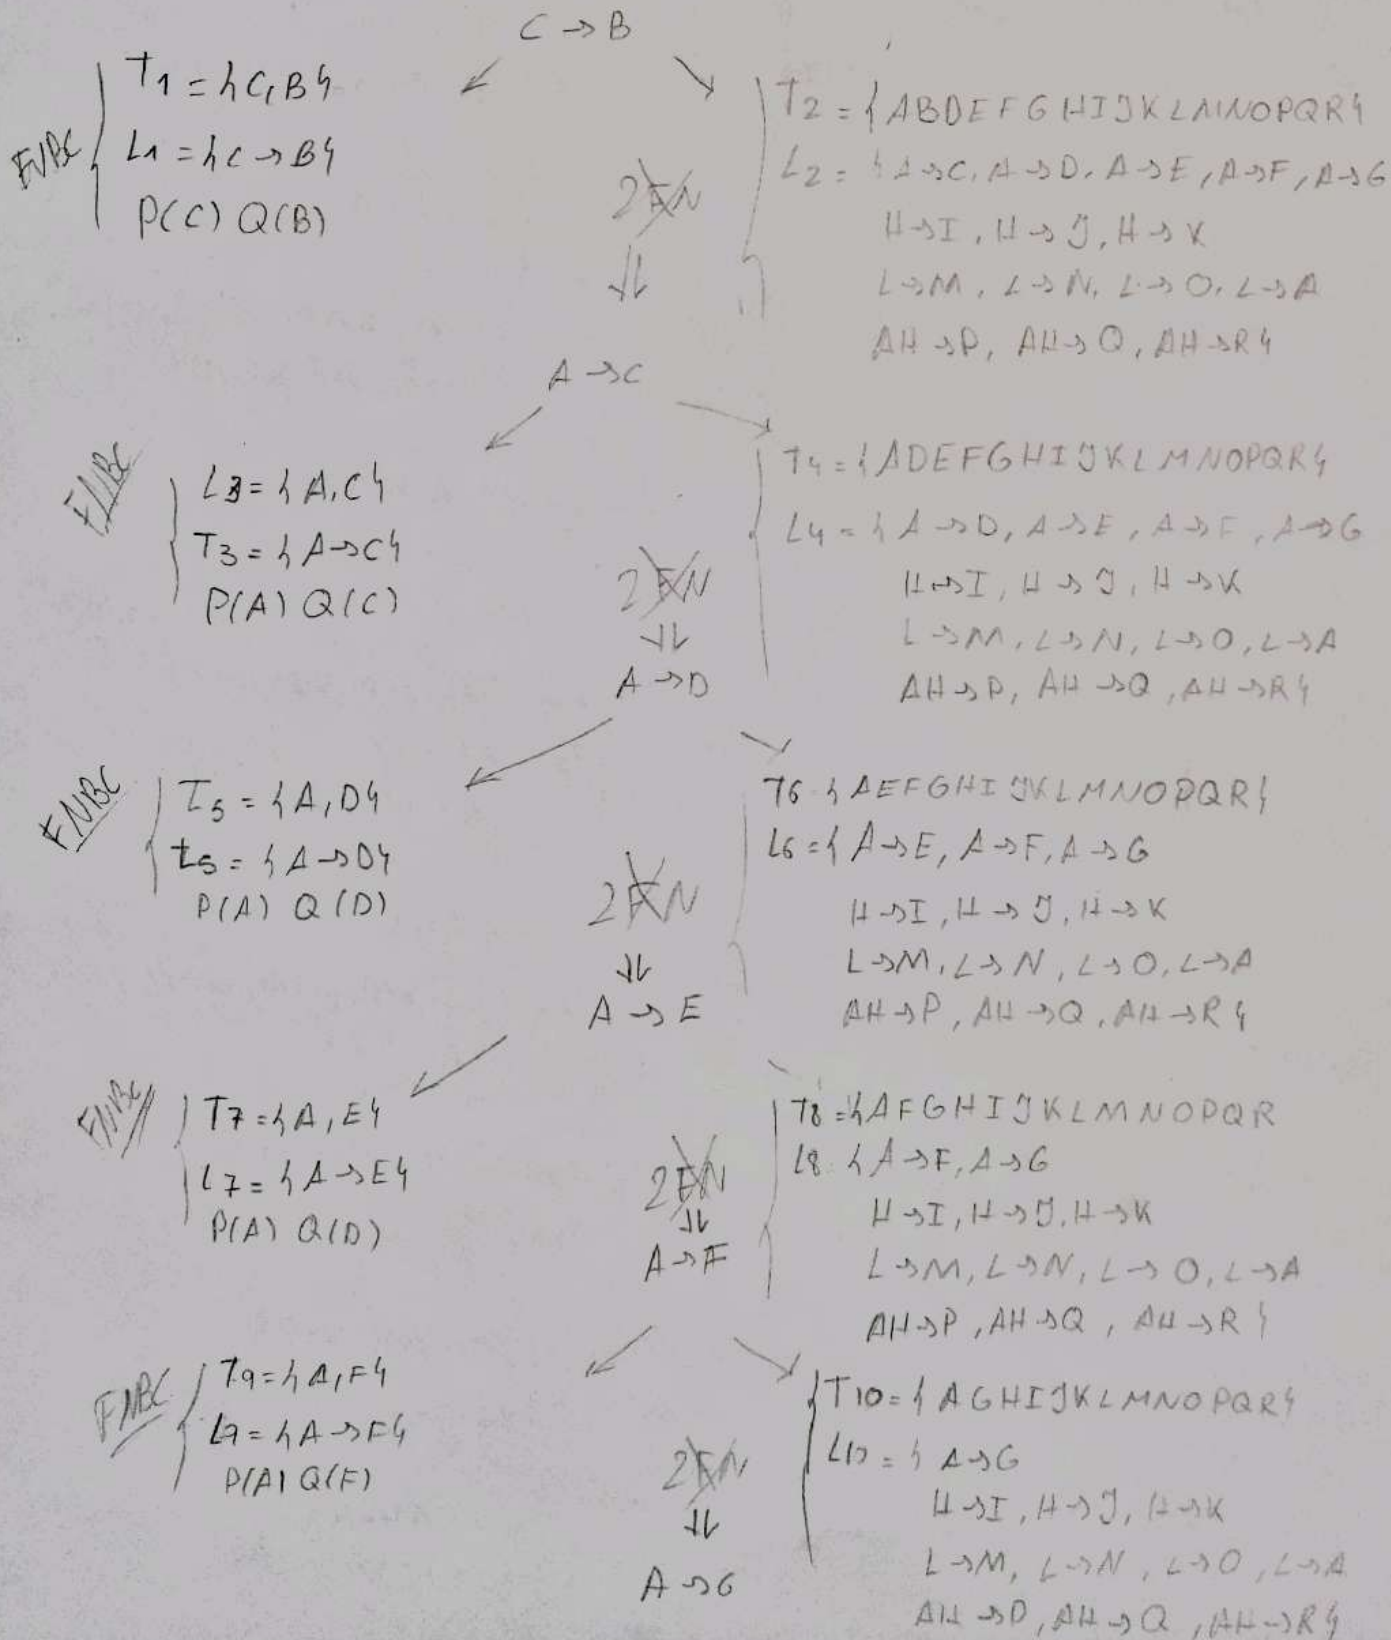 C → B
FNBC
T1 = {C,B}
L1 = {C → B}
P(C) Q(B)
T2 = {ABDEFGHIJKLMNOPQR}
L2 = {A→C, A→D, A→E, A→F, A→G
H→I, H→J, H→K
L→M, L→N, L→O, L→A
AH→P, AH→Q, AH→R}
2FN
⇓
A → C
FNBC
L3 = {A,C}
T3 = {A→C}
P(A) Q(C)
T4 = {ADEFGHIJKLMNOPQR}
L4 = {A→D, A→E, A→F, A→G
H→I, H→J, H→K
L→M, L→N, L→O, L→A
AH→P, AH→Q, AH→R}
2FN
⇓
A → D
FNBC
T5 = {A,D}
L5 = {A→D}
P(A) Q(D)
T6 {AEFGHIJKLMNOPQR}
L6 = {A→E, A→F, A→G
H→I, H→J, H→K
L→M, L→N, L→O, L→A
AH→P, AH→Q, AH→R}
2FN
⇓
A → E
FNBC
T7 = {A,E}
L7 = {A→E}
P(A) Q(D)
T8 = {AFGHIJKLMNOPQR
L8 {A→F, A→G
H→I, H→J, H→K
L→M, L→N, L→O, L→A
AH→P, AH→Q, AH→R}
2FN
⇓
A→F
FNBC
T9 = {A,F}
L9 = {A→F}
P(A) Q(F)
T10 = {AGHIJKLMNOPQR}
L10 = {A→G
H→I, H→J, H→K
L→M, L→N, L→O, L→A
AH→P, AH→Q, AH→R}
2FN
⇓
A→G